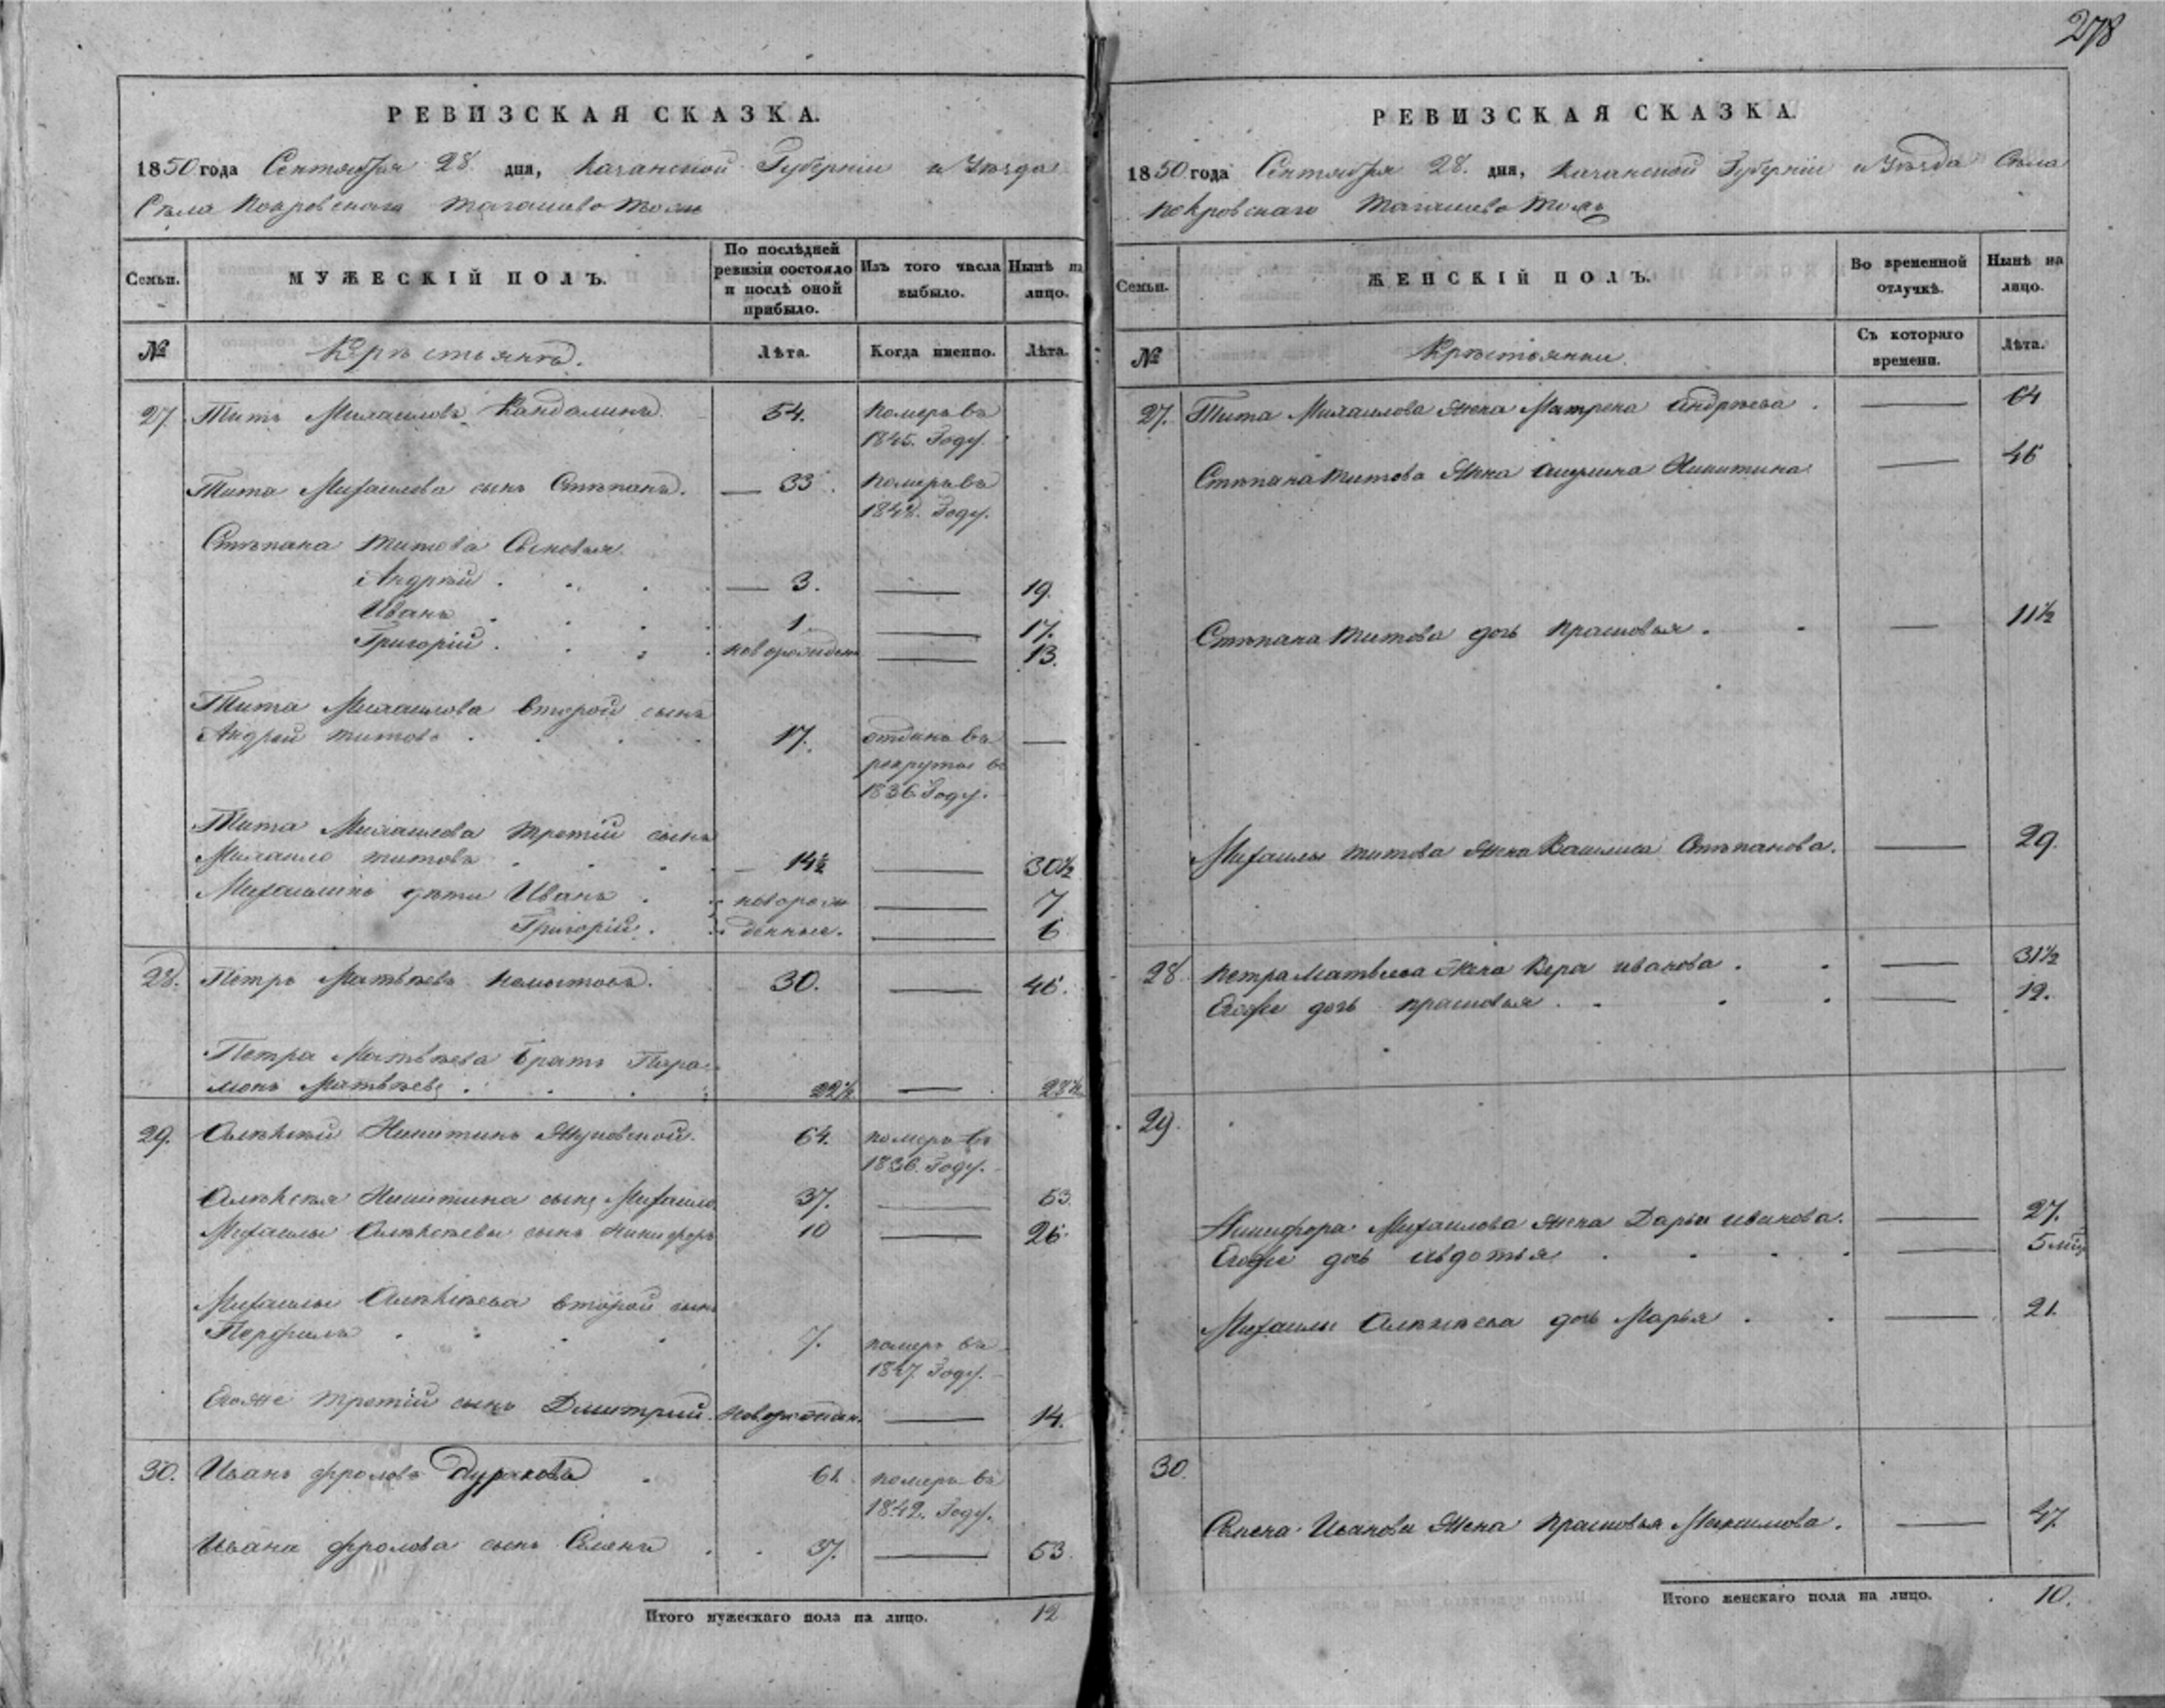 278
РЕВИЗСКАЯ СКАЗКА.
1850 года Сентября 28 дня, Казанской Губернiи и Уѣзда
Села Покровскаго
Семьи.
МУЖЕСКIЙ ПОЛЪ.
По послѣдней ревизiи состояло и послѣ оной прибыло.
Изъ того числа выбыло.
Нынѣ на лицо.
№
Крѣстьянѣ.
Лѣта.
Когда именно.
Лѣта.
27. Титъ Михаиловъ Кандалинъ. 54. Померъ въ
1845. Году.
Тита Михаилова сынъ Стѣпанъ. — 33. Померъ въ
1842. Году.
Стѣпана Титова Сыновья
Андрѣй . — 3. — 19.
Иванъ . 1. — 17.
Григорiй . новорожденъ — 13.
Тита Михаилова второй сынъ
Андрей Титовъ . 17. отданъ въ —
рекруты въ
1836 Году.
Тита Михаилова третiй сынъ
Михаило Титовъ . 14½ — 30½
Михаилины дѣти Иванъ . новорож — 7
Григорiй . денные. — 6
28. Пѣтръ Матвѣевъ 30. — 46.
Петра Матвѣева братъ Пара-
монъ Матвѣевъ . 22½ — 28½
29. Алѣксѣй Никитинъ 64. померъ въ
1836. Году.
Алѣксѣя Никитина сынъ Михаило 37. — 53.
Михаилы Алѣксѣева сынъ Никифоръ 10 — 26.
Михаилы Алѣксѣева второй сынъ
Перфилъ . 7. померъ въ
1847 Году.
Егоже третiй сынъ Дмитрий. новорожден. — 14.
30. Иванъ Фроловъ Дураковъ . померъ въ
1842. Году.
Ивана Фролова сынъ Семенъ . 37. — 53.
Итого мужескаго пола на лицо. 12
РЕВИЗСКАЯ СКАЗКА.
1850 года Сентября 28. дня, Казанской Губернiи и Уѣзда Села
Покровскаго
Семьи.
ЖЕНСКIЙ ПОЛЪ.
Во временной отлучкѣ.
Нынѣ на лицо.
№
Крѣстьянки.
Съ котораго времени.
Лѣта.
27. Тита Михаилова жена Матрена Андрѣева . — 64
Стѣпана Титова жена Никитина — 46
Стѣпана Титова дочь Прасковья . — 11½
Михаилы Титова жена Василиса Стѣпанова. — 29.
28. Петра Матвѣева жена Вера Иванова . — 31½
Егоже дочь Прасковья . — 12.
29.
Никифора Михаилова жена Дарья Иванова. — 27.
Егоже дочь Авдотья . — 5 мѣс
Михаилы Алѣксѣева дочь Марья . — 21.
30.
Семена Иванова жена Прасковья Максимова. — 47.
Итого женскаго пола на лицо. 10.